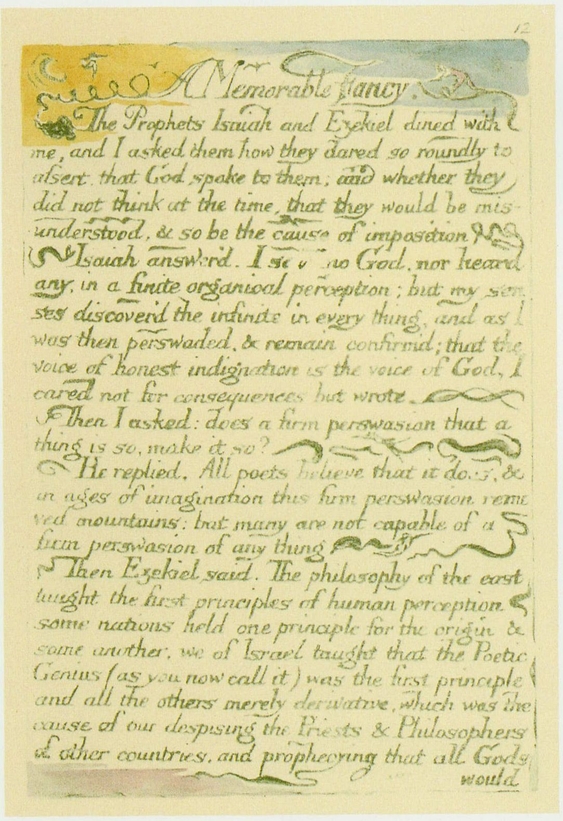 12
A Memorable Fancy.
The Prophets Isaiah and Ezekiel dined with
me, and I asked them how they dared so roundly to
assert. that God spoke to them; and whether they
did not think at the time, that they would be mis-
understood, & so be the cause of imposition
Isaiah answer'd. I saw no God, nor heard
any, in a finite organical perception; but my sen-
ses discover'd the infinite in every thing, and as I
was then perswaded, & remain confirm'd; that the
voice of honest indignation is the voice of God, I
cared not for consequences but wrote
Then I asked: does a firm perswasion that a
thing is so, make it so?
He replied, All poets believe that it does, &
in ages of imagination this firm perswasion remo
ved mountains; but many are not capable of a
firm perswasion of any thing
Then Ezekiel said. The philosophy of the east
taught the first principles of human perception
some nations held one principle for the origin &
some another, we of Israel taught that the Poetic
Genius (as you now call it) was the first principle
and all the others merely derivative, which was the
cause of our despising the Priests & Philosophers
of other countries, and prophecying that all Gods
would